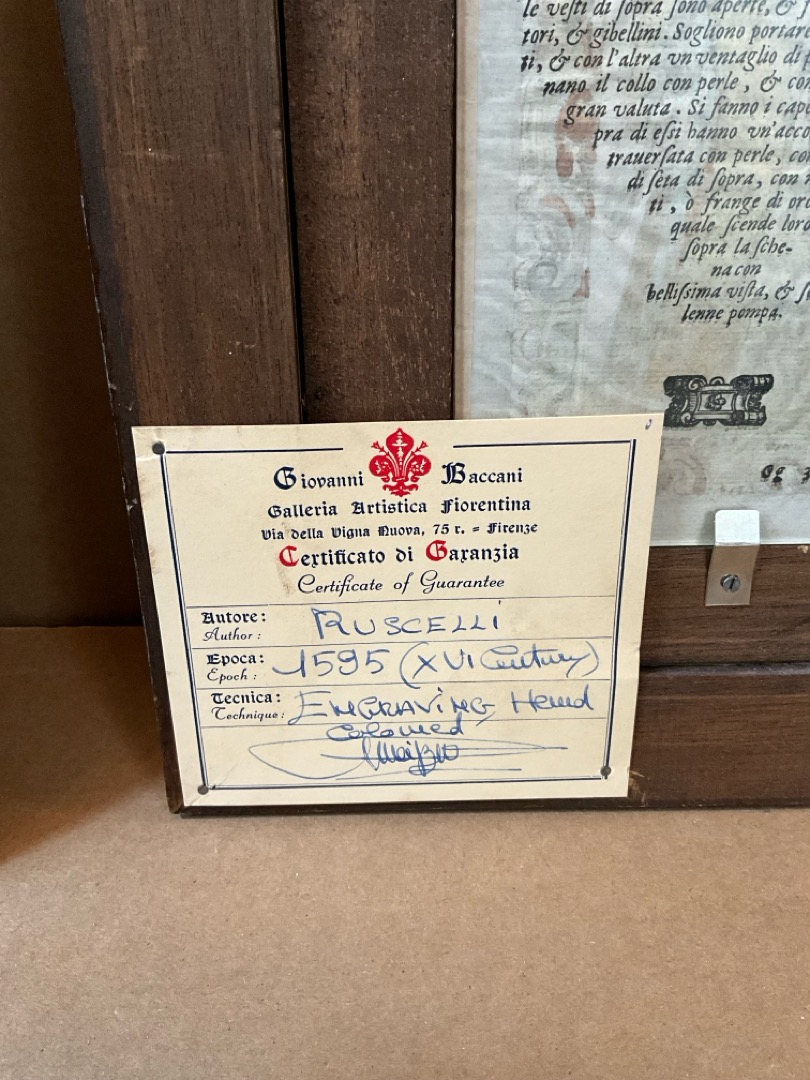 le vesti di sopra sono aperte, &
tori, & gibellini. Sogliono portare
ti, & con l'altra vn ventaglio di p
nano il collo con perle, & con
gran valuta. Si fanno i cap
pra di essi hanno vn'acco
trauersata con perle, co
di seta di sopra, con
ti, ò frange di oro
quale scende loro
sopra la sche-
na con
bellissima vista, & s
lenne pompa.
Giovanni Baccani
Galleria Artistica Fiorentina
Via della Vigna Nuova, 75 r. = Firenze
Certificato di Garanzia
Certificate of Guarantee
Autore: RUSCELLI
Author:
Epoca: 1595 (XVI Century)
Epoch:
Tecnica: ENGRAVING Hand
Technique:
Coloured